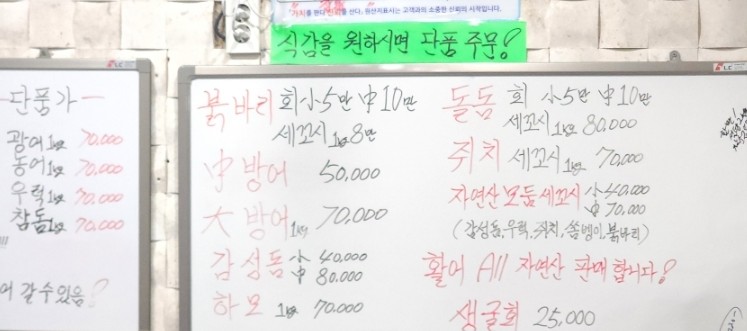 "가치를 판다 신뢰를 산다. 원산지표시는 고객과의 소중한 신뢰의 시작입니다."
식감을 원하시면 단품 주문!
단품가
광어 1kg 70,000
농어 1kg 70,000
우럭 1kg 70,000
참돔 1kg 70,000
어 갈 수 있음!
붉바리 회 小 5만 中 10만
세꼬시 1kg 8만
中 방어 50,000
大 방어 1kg 70,000
감성돔 小 40,000
中 80,000
하모 1kg 70,000
돌돔 회 小 5만 中 10만
세꼬시 1kg 80,000
쥐치 세꼬시 1kg 70,000
자연산 모듬 세꼬시 小 40,000
中 70,000
(감성돔, 우럭, 쥐치, 쏨뱅이, 붉바리)
활어 All 자연산 판매합니다!
생굴회 25,000